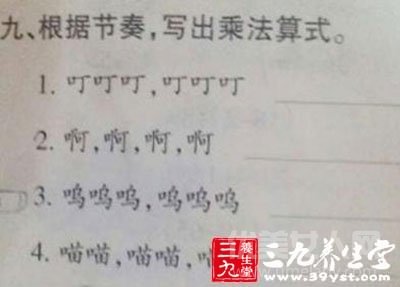 九、根据节奏,写出乘法算式。
1. 叮叮叮,叮叮叮
2. 啊,啊,啊,啊
3. 呜呜呜,呜呜呜
4. 喵喵,喵喵,
三九
養生堂
三九养生堂
www.39yst.com